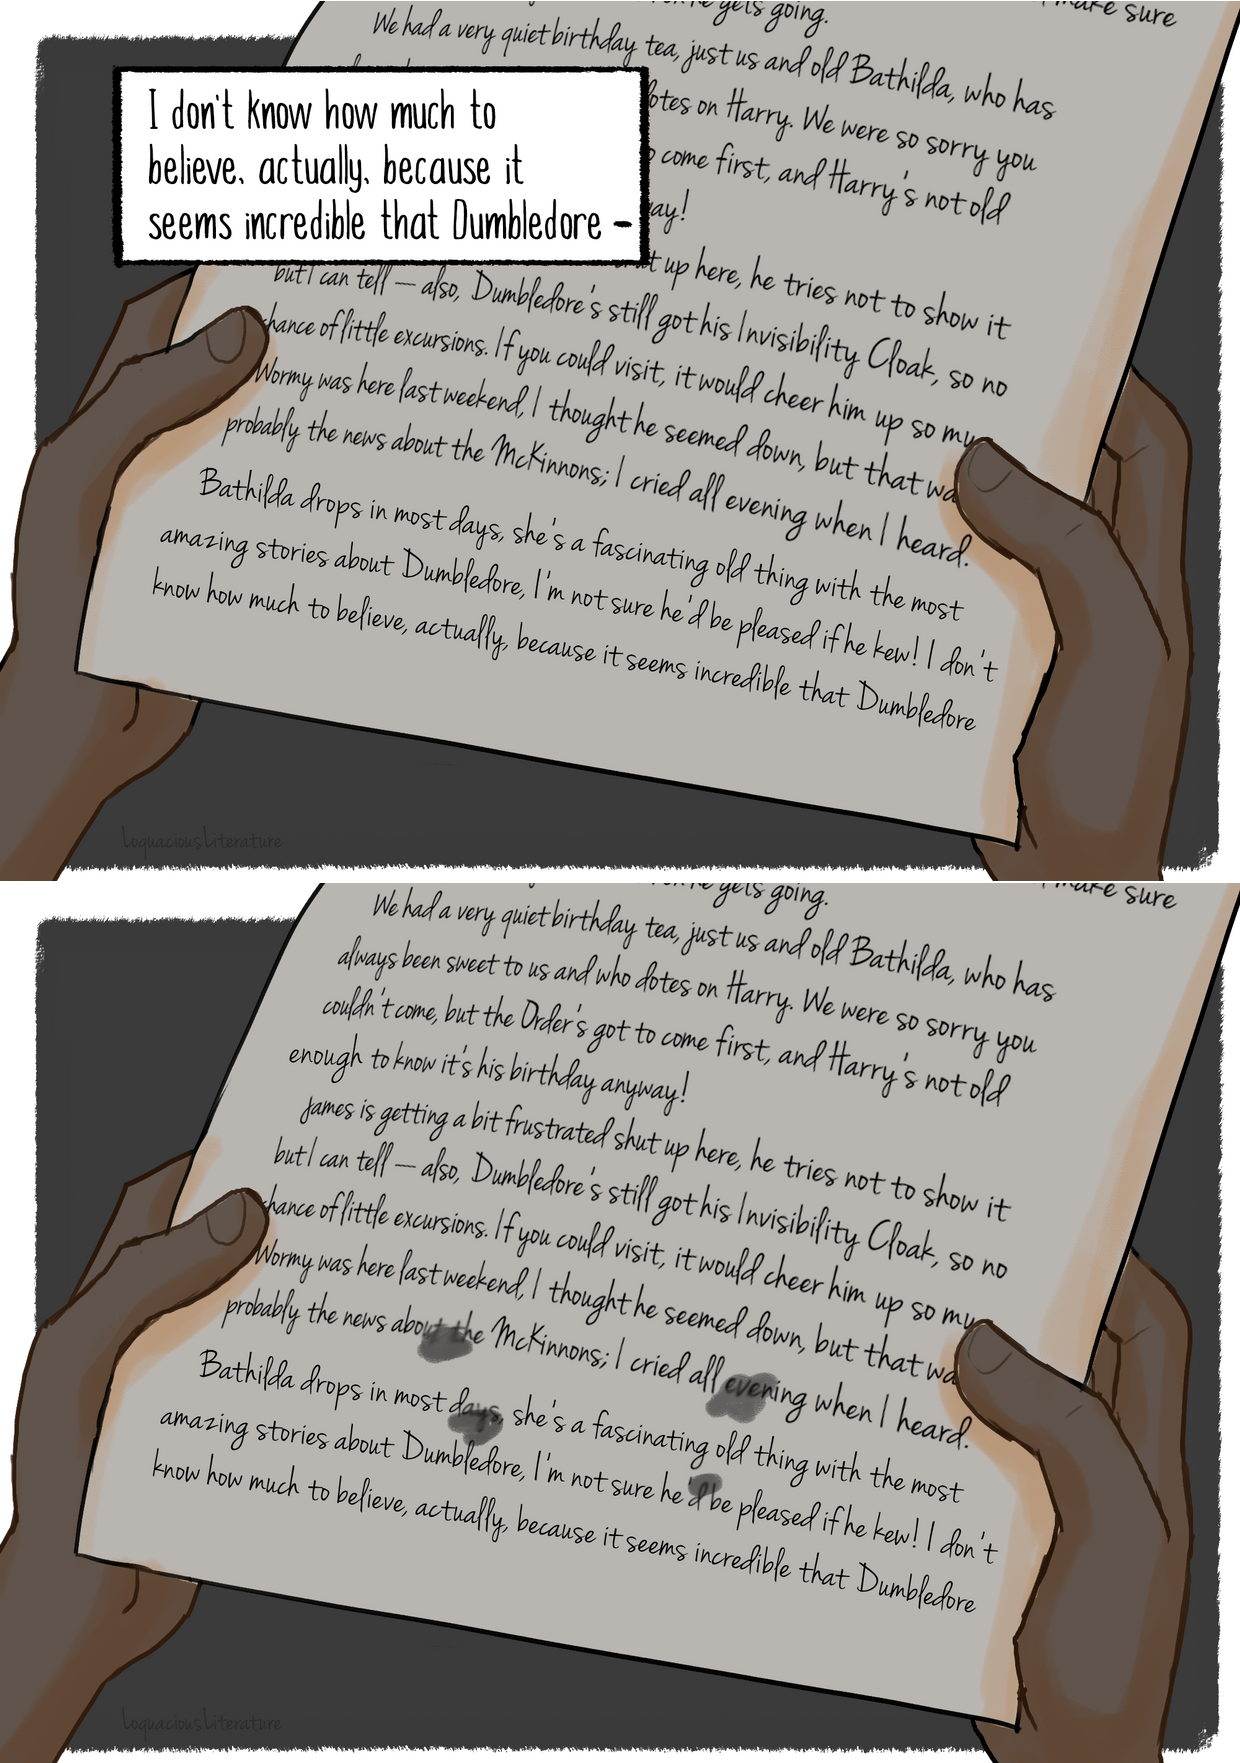 gets going.
make sure
We had a very quiet birthday tea, just us and old Bathilda, who has
I don't know how much to
believe, actually, because it
seems incredible that Dumbledore -
dotes on Harry. We were so sorry you
to come first, and Harry's not old
up here, he tries not to show it
but I can tell — also, Dumbledore's still got his Invisibility Cloak, so no
chance of little excursions. If you could visit, it would cheer him up so mu
Wormy was here last weekend, I thought he seemed down, but that wa
probably the news about the McKinnons; I cried all evening when I heard.
Bathilda drops in most days, she's a fascinating old thing with the most
amazing stories about Dumbledore, I'm not sure he'd be pleased if he kew! I don't
know how much to believe, actually, because it seems incredible that Dumbledore
LoquaciousLiterature
he gets going.
make sure
We had a very quiet birthday tea, just us and old Bathilda, who has
always been sweet to us and who dotes on Harry. We were so sorry you
couldn't come, but the Order's got to come first, and Harry's not old
enough to know it's his birthday anyway!
James is getting a bit frustrated shut up here, he tries not to show it
but I can tell — also, Dumbledore's still got his Invisibility Cloak, so no
chance of little excursions. If you could visit, it would cheer him up so mu
Wormy was here last weekend, I thought he seemed down, but that wa
probably the news about the McKinnons; I cried all evening when I heard.
Bathilda drops in most days, she's a fascinating old thing with the most
amazing stories about Dumbledore, I'm not sure he'd be pleased if he kew! I don't
know how much to believe, actually, because it seems incredible that Dumbledore
LoquaciousLiterature